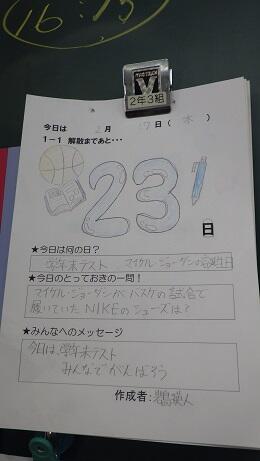 16:15
2年3組
今日は 2月 17日(水)
1-1 解散まであと・・・
23日
★今日は何の日?
学年末テスト マイケル・ジョーダンの誕生日
★今日のとっておきの一問!
マイケル・ジョーダンがバスケの試合で
履いていたNIKEのシューズは?
★みんなへのメッセージ
今日は、学年末テスト
みんなでがんばろう
作成者: